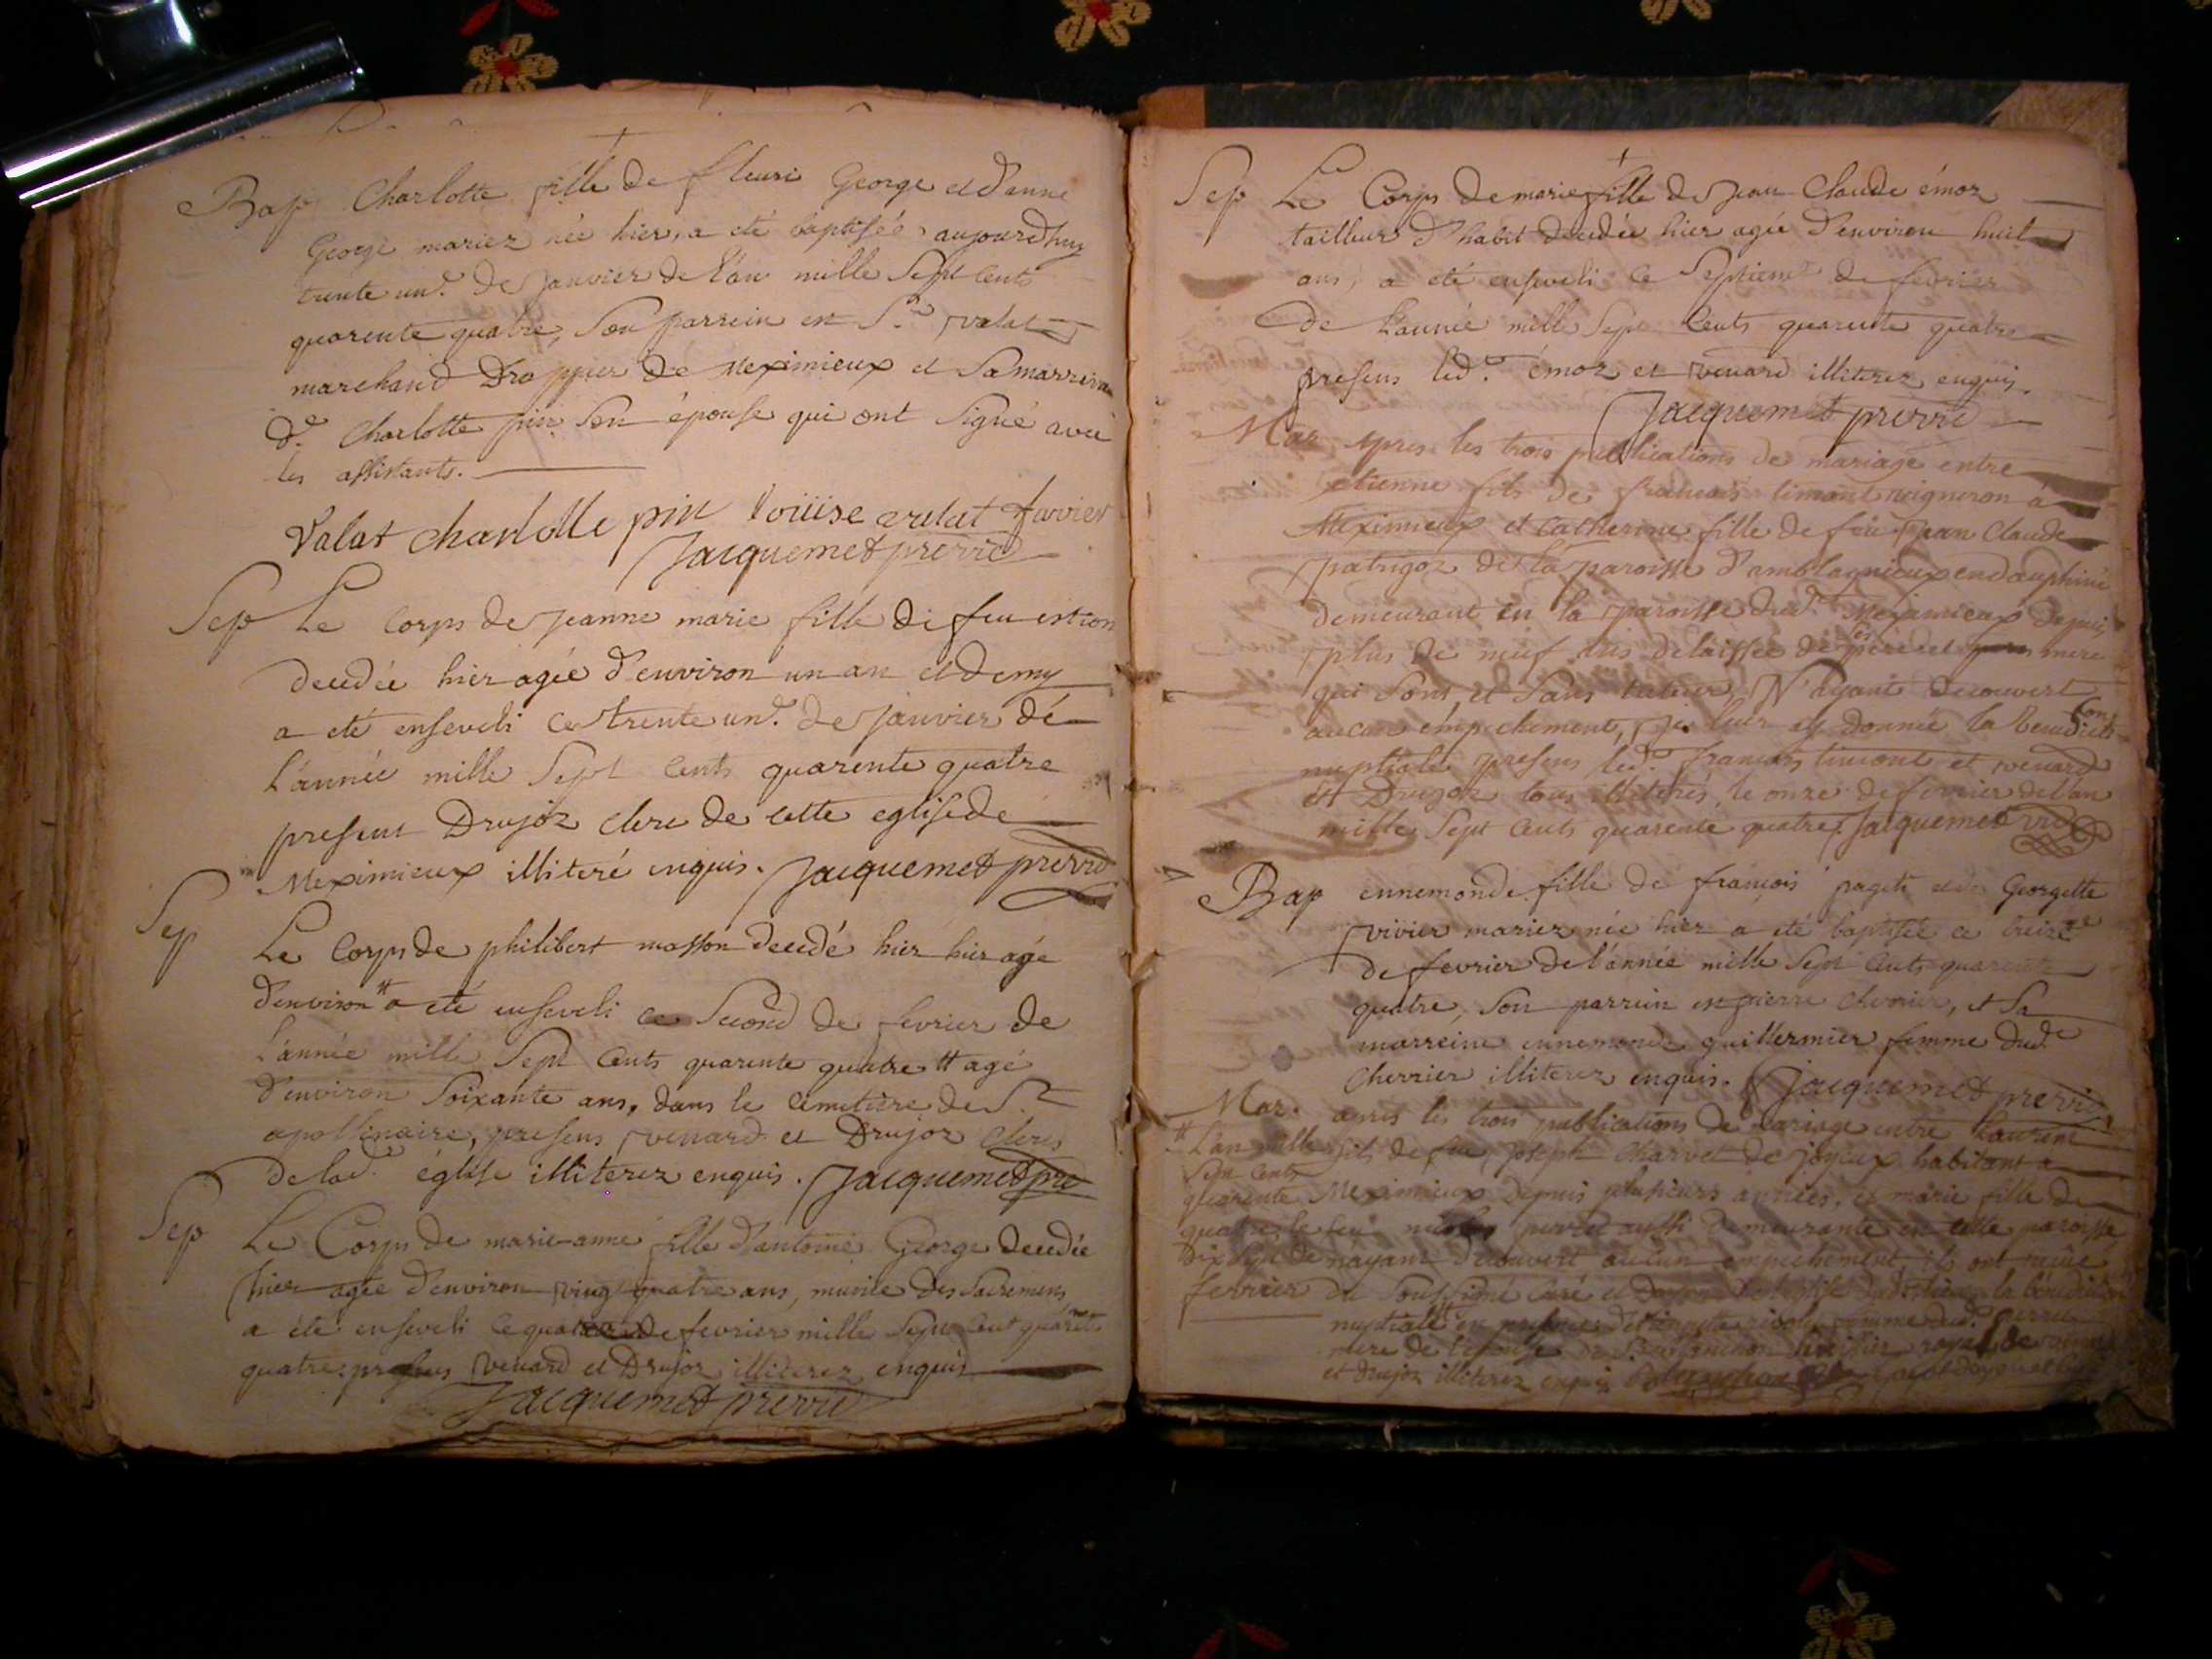 Bap Charlotte fille de fleuri George et d'anne
George mariez née hier, a eté baptisée aujourdhuy
trente un.e de janvier de l'an mille Sept Cents
quarente quatre, Son parrein est S.r valat
marchand Drappier de Meximieux et Sa marreine
d.e Charlotte pin Son épouse qui ont Signé avec
les assistants.
Valat charlotte pin louiise valat
Jacquemet
Sep Le Corps de jeanne marie fille de feu
decedée hier agée d'environ un an et demy
a eté enseveli ce trente un.e de janvier de
l'année mille Sept Cents quarente quatre
present Drujoz clerc de cette eglise de
Meximieux illiteré enquis. Jacquemet
Sep Le Corps de philibert masson decedé hier hier agé
d'environ # a eté enseveli ce Second de fevrier de
l'année mille Sept Cents quarente quatre # agé
d'environ Soixante ans, dans le Cimetiere de S.t
apollinaire, presens venard et Drujoz Clercs
de lad.e église illiterez enquis. Jacquemet
Sep Le Corps de marie-anne fille d'antoine George decedée
hier agée d'environ vingt quatre ans, munie des Sacremens
a eté enseveli ce de fevrier mille Sept Cent
quatre: presens venard et Drujoz illiterez enquis
Jacquemet
Sep Le Corps de marie fille de Jean Claude émoz
tailleur d'habit decedée hier agée d'environ huit
ans, a eté enseveli ce Septieme de fevrier
De L'année mille Sept Cents quarente quatre
presens led.t émoz et venard illiterez enquis.
Jacquemet
Mar Apres les trois publications de mariage entre
etienne fils de francois timont vigneron à
Meximieux et Catherine fille de feu jean Claude
de la paroisse d'amblagnieux en dauphiné
demeurant en la paroisse dud.t Meximieux depuis
plus de neuf ans delaissée de ses pere et mere
qui Sont, et Sans tuteur, N'ayant decouvert
aucun empechement, je leur ay donnée la benediction
nuptiale presens led.t francois timont et venard
et Drugoz tous illiterés, le onze de fevrier de l'an
mille Sept Cents quarente quatre. Jacquemet
Bap ennemonde fille de françois et de Georgette
vivier mariez née hier a eté baptisée ce treize
de fevrier de l'année mille Sept Cents quarente
quatre, Son parrein est pierre Cherrier, et Sa
marreine ennemonde guillermier femme dud.t
Cherrier illiterez enquis. Jacquemet
Mar. apres les trois publications de mariage entre Laurent
# L'an mille fils de feu joseph Charvet de joyeux habitant a
Sept Cents
quarente Meximieux depuis plusieurs années, et marie fille de
quatre, le feu perret aussi demeurante en cette paroisse
dix Sept de nayant decouvert aucun empechement, ils ont
fevrier du Soussigné Curé la bénediction
nuptiale en presence
mere de l'épouse
et drujoz illiterez enquis